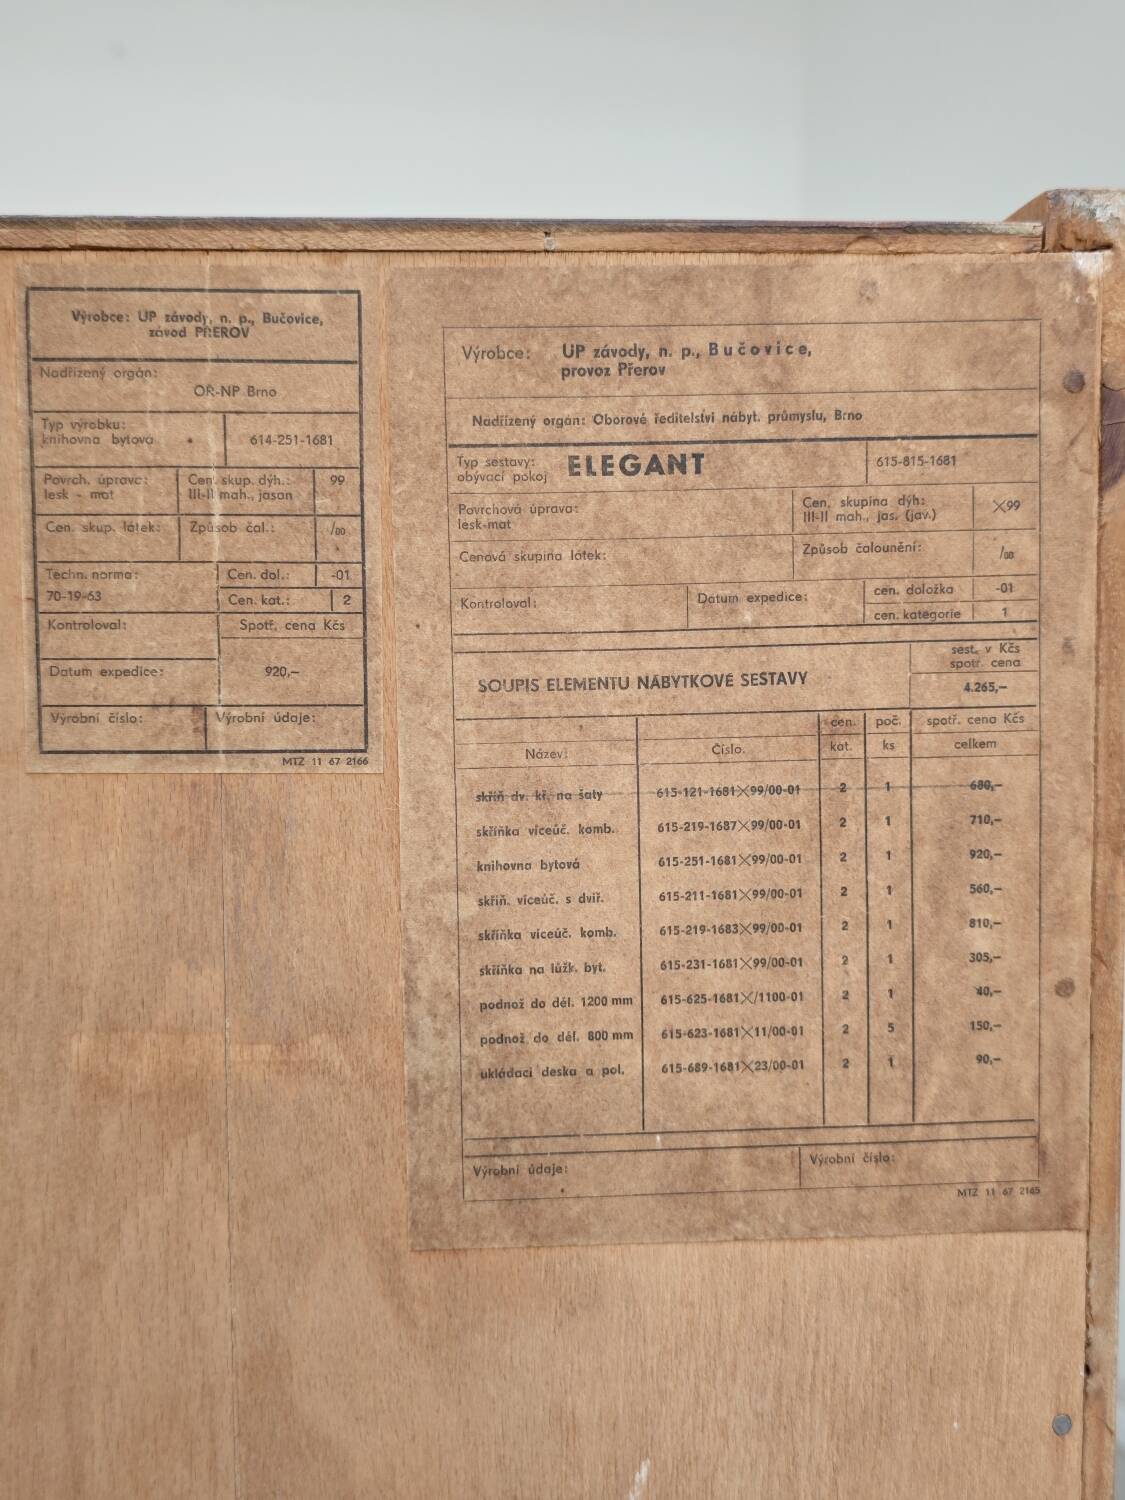 Výrobce: UP závody, n. p., Bučovice,
závod PŘEROV
Nadřízený orgán:
OŘ-NP Brno
Typ výrobku:
knihovna bytová
614-251-1681
Povrch. úprava:
lesk - mat
Cen. skup. dýh.:
III-II mah., jasan
99
Cen. skup. látek:
Způsob čal.:
/00
Techn. norma:
70-19-63
Cen. dol.:
-01
Cen. kat.:
2
Kontroloval:
Spotř. cena Kčs
Datum expedice:
920,—
Výrobní číslo:
Výrobní údaje:
MTZ 11 67 2166
Výrobce: UP závody, n. p., Bučovice,
provoz Přerov
Nadřízený orgán: Oborové ředitelství nábyt. průmyslu, Brno
Typ sestavy:
obývací pokoj
ELEGANT
615-815-1681
Povrchová úprava:
lesk-mat
Cen. skupina dýh:
III-II mah., jas. (jav.)
X99
Cenová skupina látek:
Způsob čalounění:
/00
Kontroloval:
Datum expedice:
cen. doložka
-01
cen. kategorie
1
SOUPIS ELEMENTU NÁBYTKOVÉ SESTAVY
sest. v Kčs
spotř. cena
4.265,—
Název:
Číslo.
cen.
kat.
poč.
ks
spotř. cena Kčs
celkem
skříň dv. kř. na šaty 615-121-1681X99/00-01 2 1 680,—
skříňka víceúč. komb. 615-219-1687X99/00-01 2 1 710,—
knihovna bytová 615-251-1681X99/00-01 2 1 920,—
skříň. víceúč. s dvíř. 615-211-1681X99/00-01 2 1 560,—
skříňka víceúč. komb. 615-219-1683X99/00-01 2 1 810,—
skříňka na lůžk. byt. 615-231-1681X99/00-01 2 1 305,—
podnož do dél. 1200 mm 615-625-1681X/1100-01 2 1 40,—
podnož do dél. 800 mm 615-623-1681X11/00-01 2 5 150,—
ukládací deska a pol. 615-689-1681X23/00-01 2 1 90,—
Výrobní údaje:
Výrobní číslo:
MTZ 11 67 2165